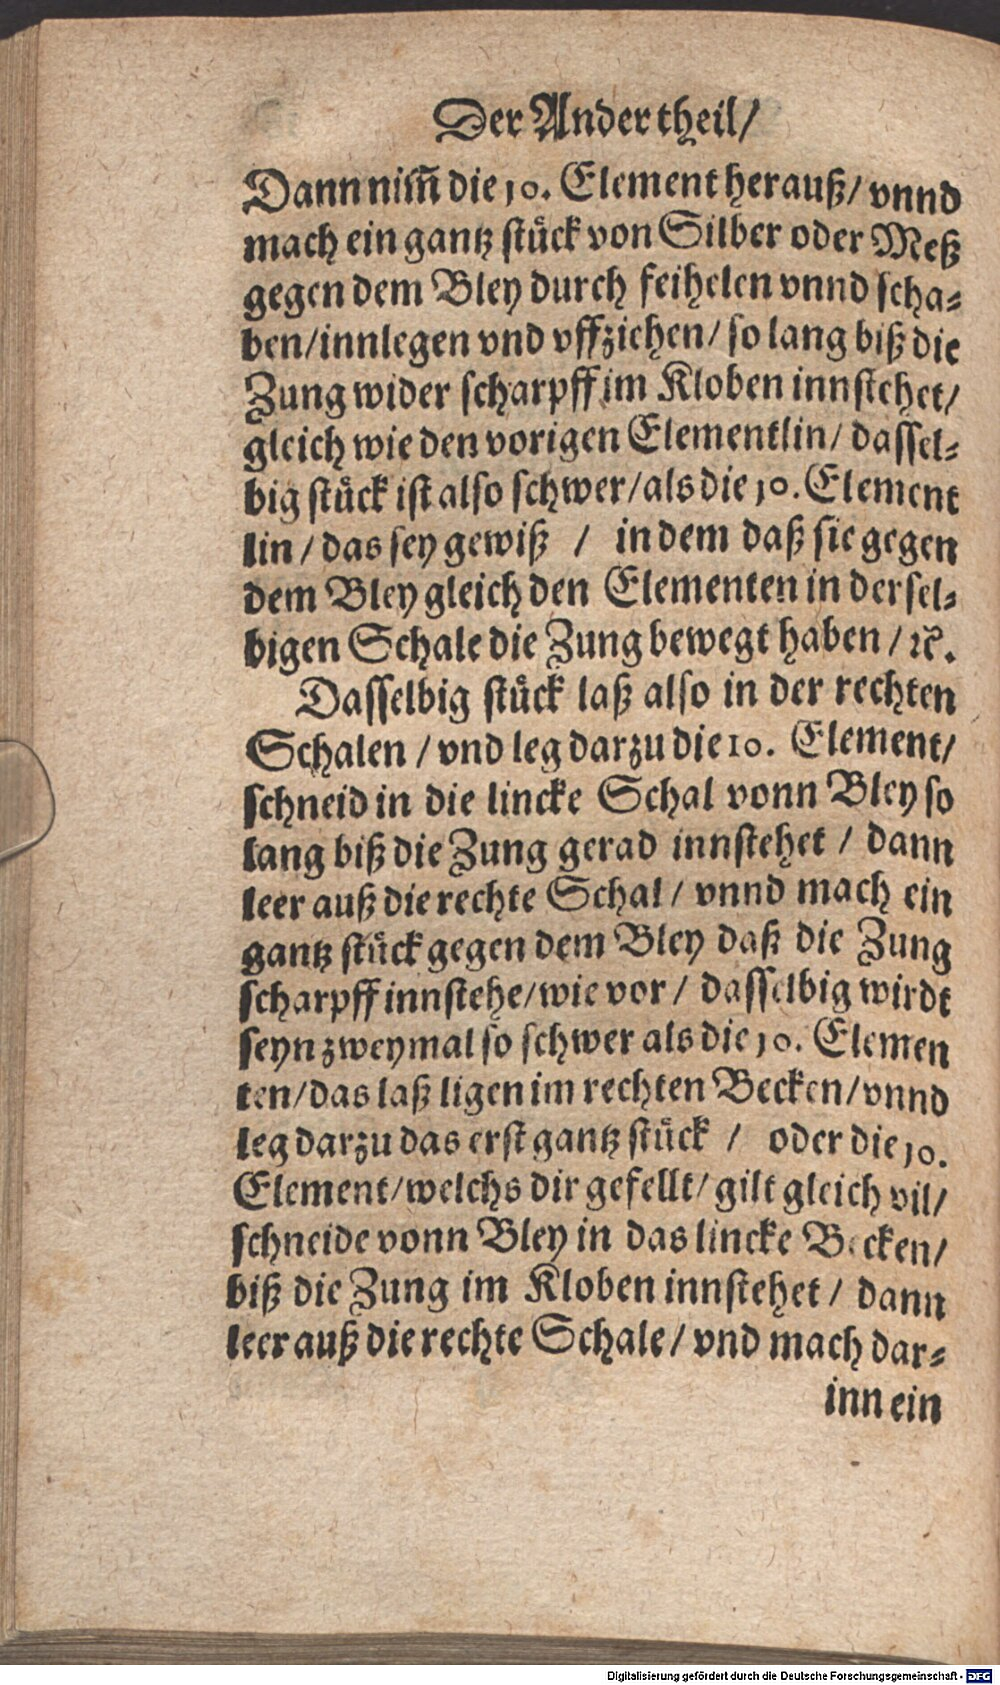 Der Ander theil/
Dann nim̃ die 10. Element herauß/ vnnd
mach ein gantz stuͤck von Silber oder Meß
gegen dem Bley durch feihelen vnnd scha⸗
ben/innlegen vnd vffziehen/ so lang biß die
Zung wider scharpff im Kloben innstehet/
gleich wie den vorigen Elementlin/ dassel⸗
big stuͤck ist also schwer/als die 10. Element
lin / das sey gewiß / in dem daß sie gegen
dem Bley gleich den Elementen in dersel⸗
bigen Schale die Zung bewegt haben / ꝛc.
Dasselbig stuͤck laß also in der rechten
Schalen / vnd leg darzu die 10. Element/
schneid in die lincke Schal vonn Bley so
lang biß die Zung gerad innstehet / dann
leer auß die rechte Schal / vnnd mach ein
gantz stuͤck gegen dem Bley daß die Zung
scharpff innstehe/wie vor / dasselbig wirdt
seyn zweymal so schwer als die 10. Elemen
ten/das laß ligen im rechten Becken/vnnd
leg darzu das erst gantz stuͤck / oder die 10.
Element/welchs dir gefellt/ gilt gleich vil/
schneide vonn Bley in das lincke Becken/
biß die Zung im Kloben innstehet / dann
leer auß die rechte Schale / vnd mach dar⸗
inn ein
Digitalisierung gefördert durch die Deutsche Forschungsgemeinschaft - DFG